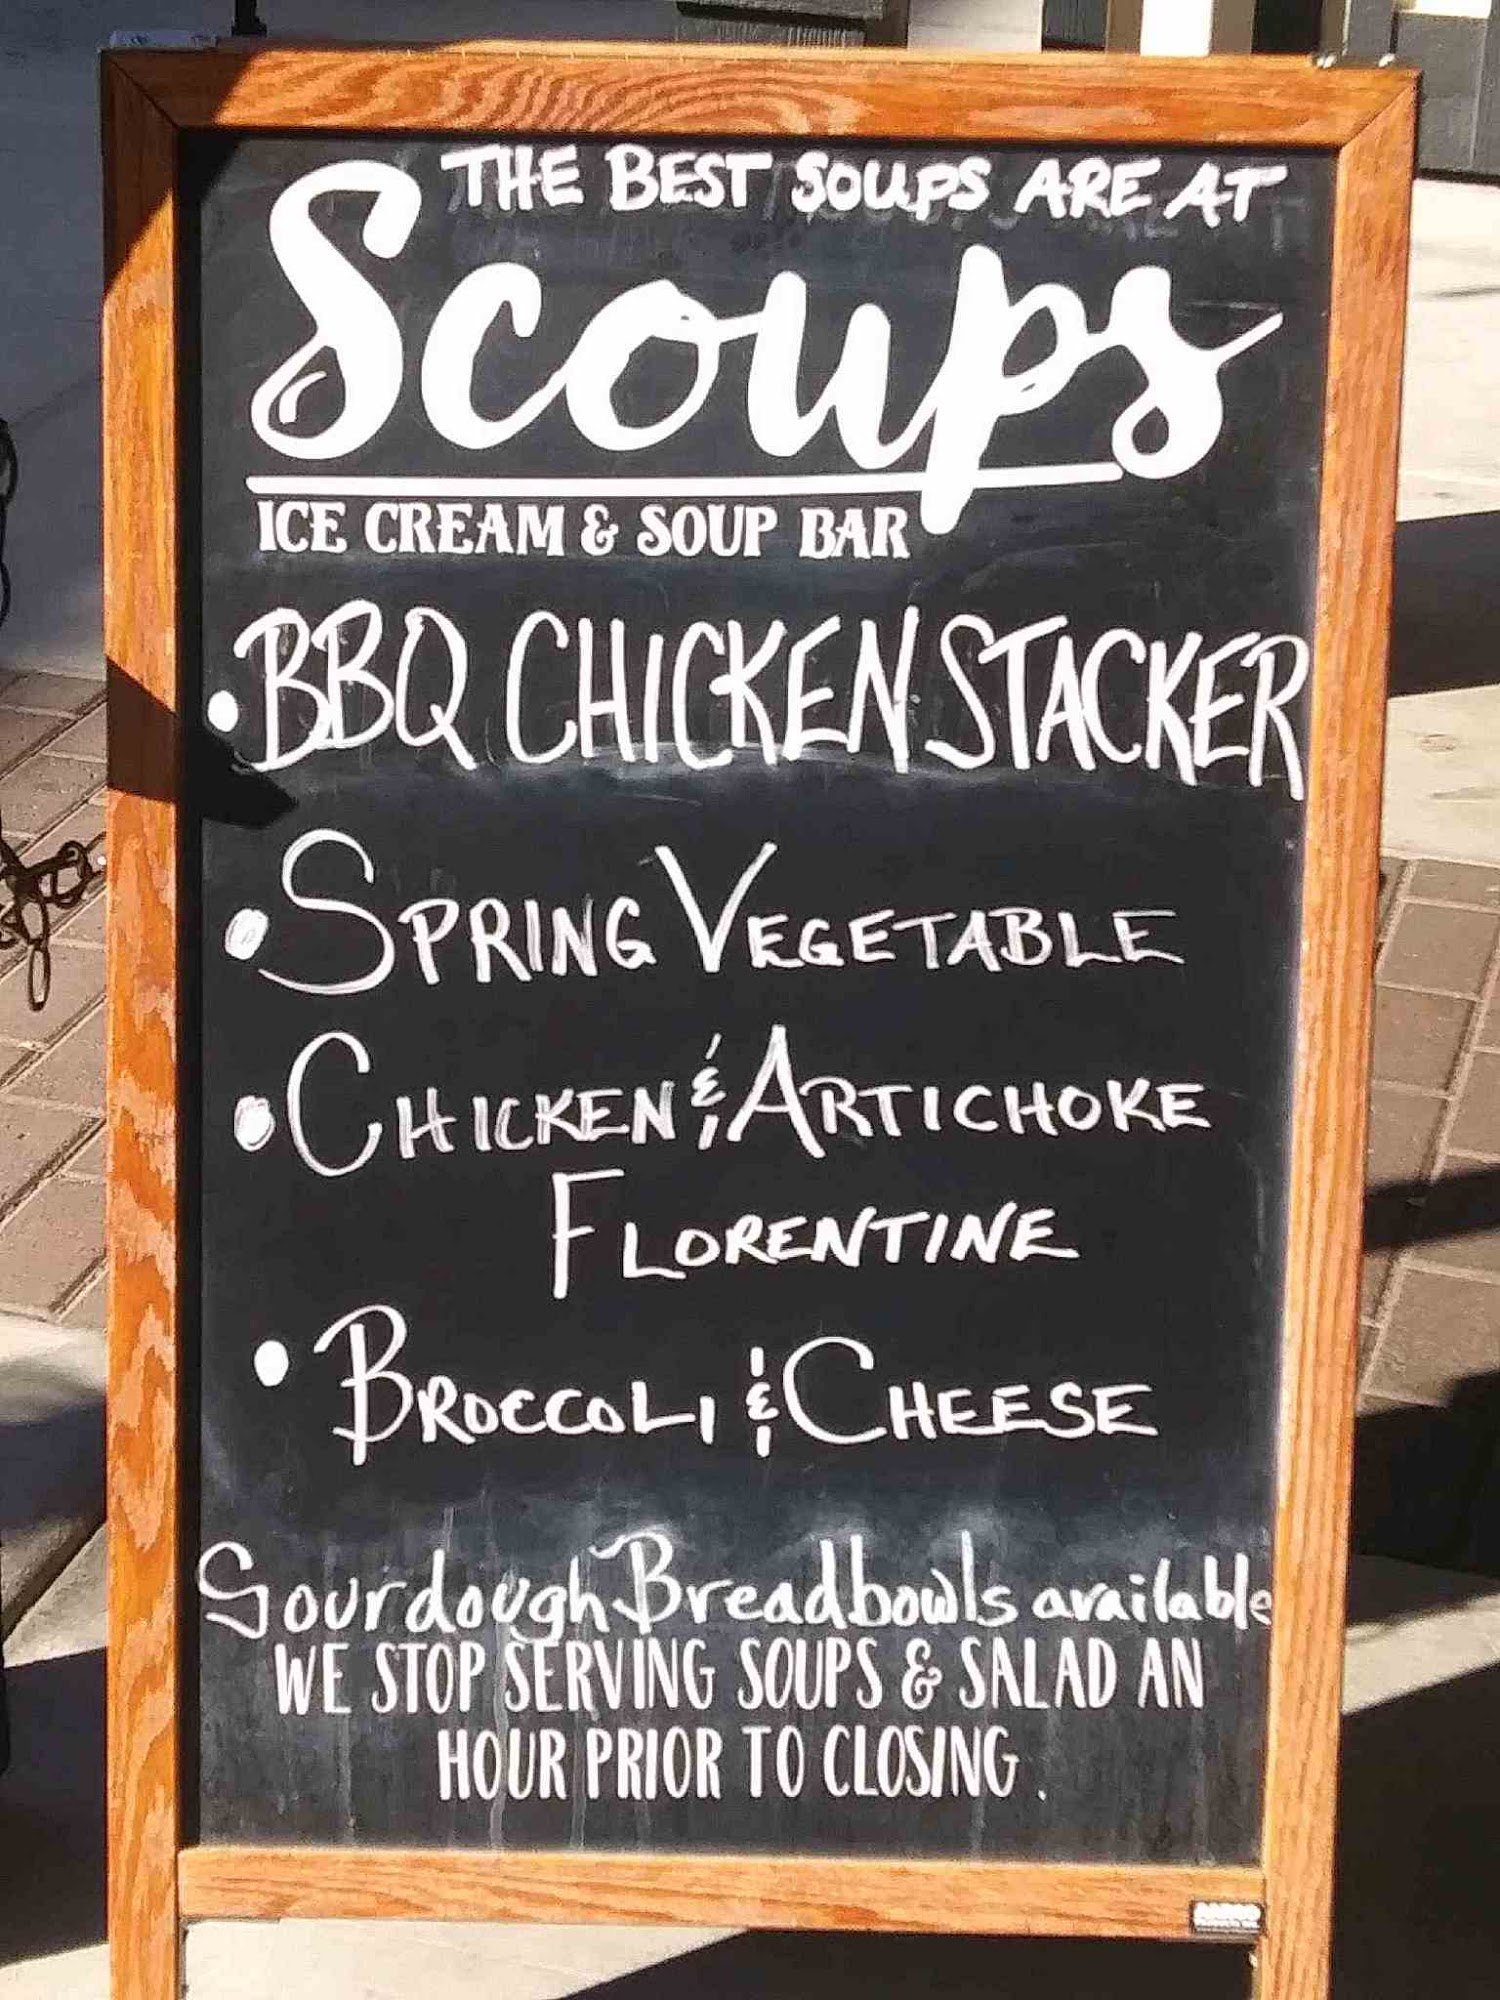 THE BEST SOUPS ARE AT
Scoups
ICE CREAM & SOUP BAR
• BBQ CHICKEN STACKER
• SPRING VEGETABLE
• CHICKEN & ARTICHOKE
FLORENTINE
• BROCCOLI & CHEESE
Sourdough Breadbowls available
WE STOP SERVING SOUPS & SALAD AN
HOUR PRIOR TO CLOSING.